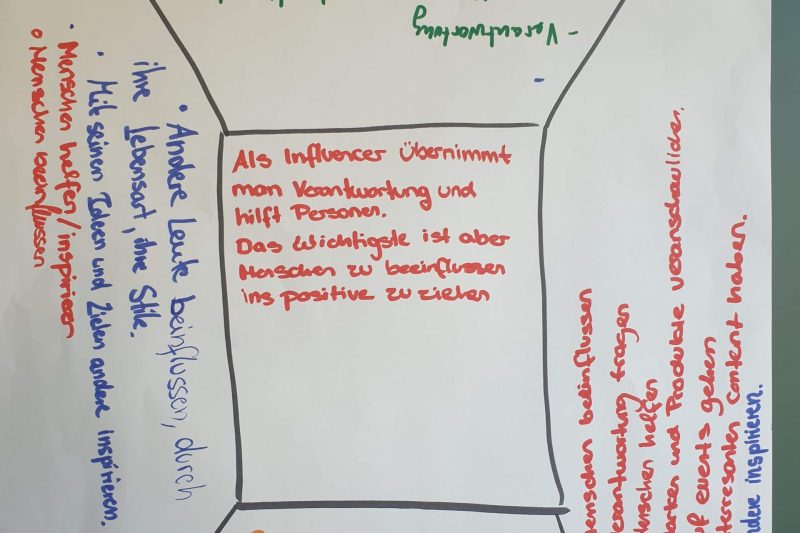 - Verantwortung
Als Influencer übernimmt
man Verantwortung und
hilft Personen.
Das Wichtigste ist aber
Menschen zu beeinflussen
ins positive zu ziehen
• Andere Leute beinflussen, durch
ihre Lebensart, ihre Stile.
• Mit seinen Ideen und Zielen andere inspirieren.
• Menschen helfen/inspirieren
• Menschen beeinflussen
enschen beeinflussen
erantwortung tragen
enschen helfen
arken und Produkte veranschaulichen.
uf events gehen
terresanten Content haben.
ndere inspirieren.